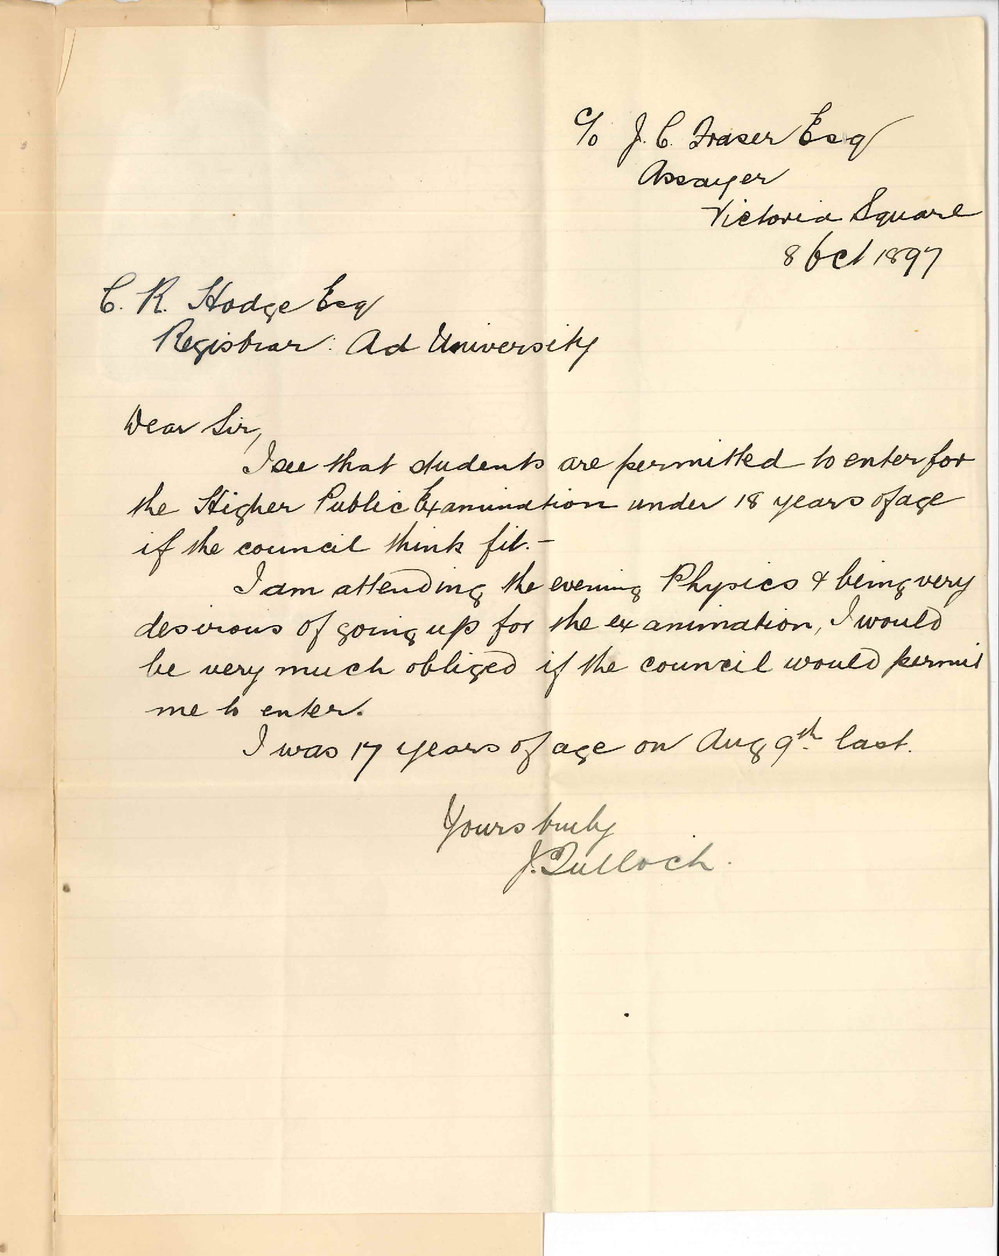 c/o J. C. Fraser Esq
Assayer
Victoria Square
8 Oct 1897
C. R. Hodge Esq
Registrar. Ad University
Dear Sir,
I see that students are permitted to enter for
the Higher Public Examination under 18 years of age
if the council think fit. —
I am attending the evening Physics & being very
desirous of going up for the examination, I would
be very much obliged if the council would permit
me to enter.
I was 17 years of age on Aug 9th last.
Yours truly
J. Tulloch.